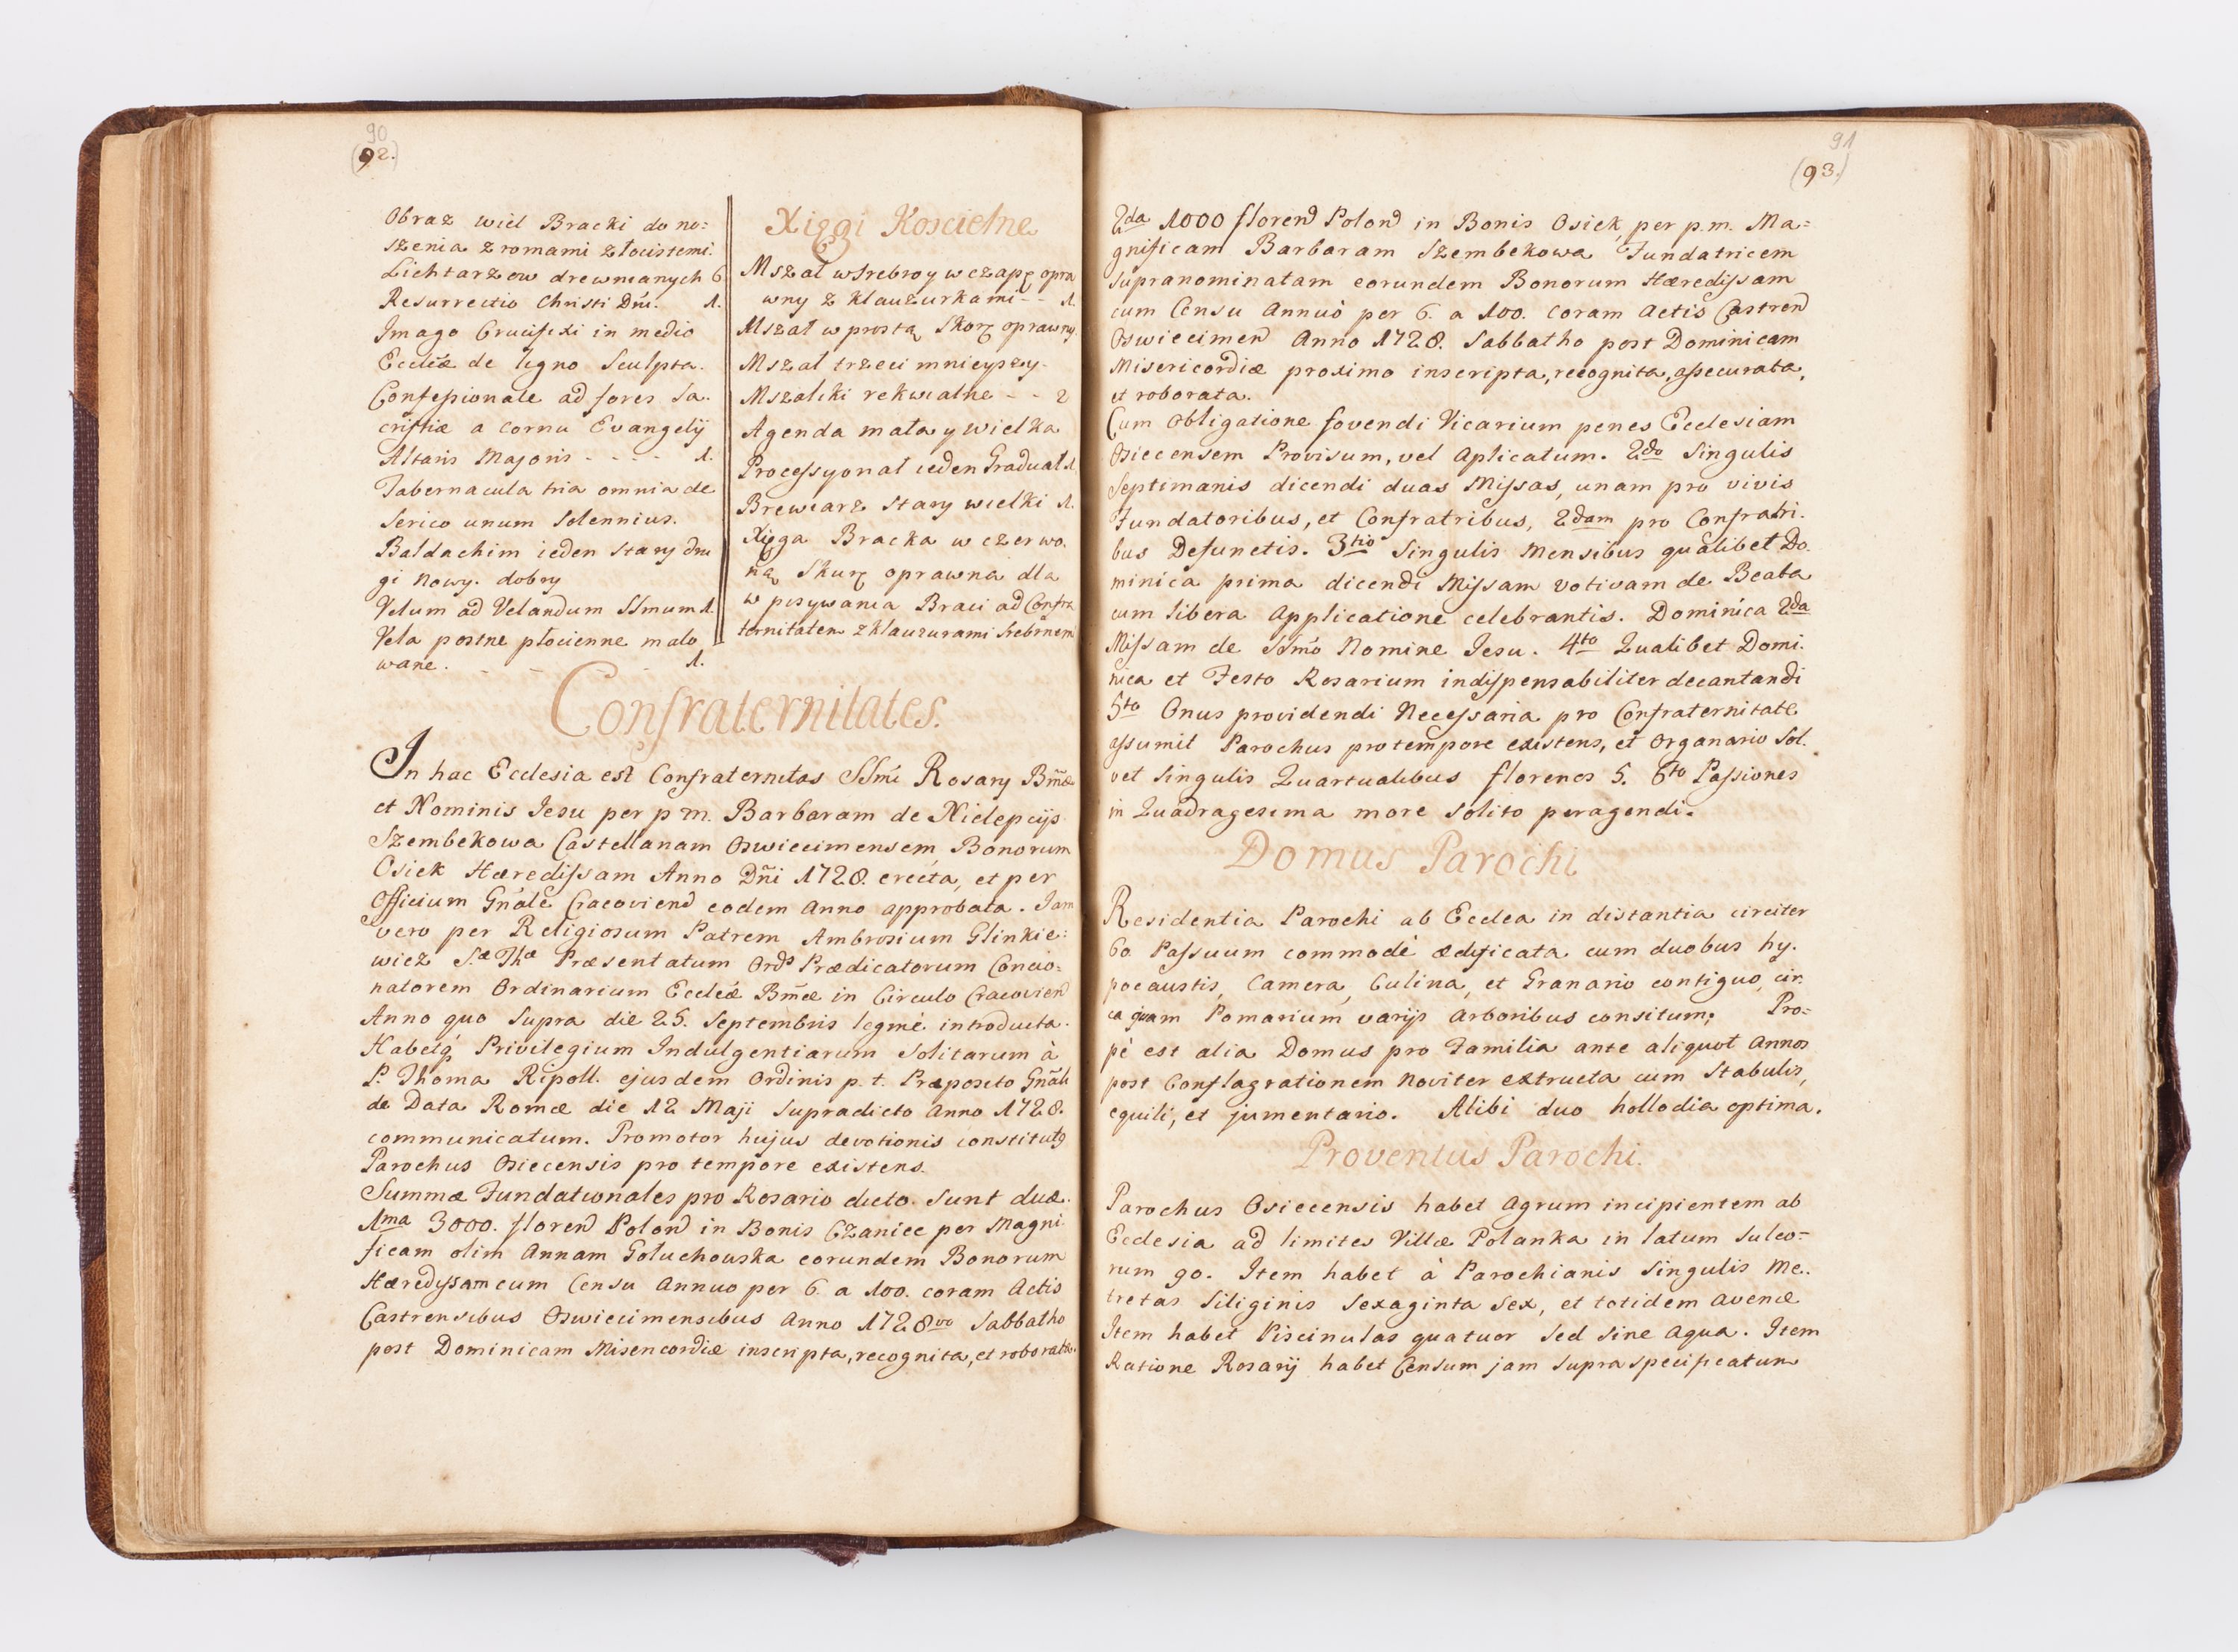 90
(92.)
Obraz wiel Bracki do no:
szenia z romami złocistemi.
Lichtarzow drewnianych 6
Resurrectio Christi Dñi. 1.
Imago Crucifixi in medio
Eccliæ de ligno Sculpta.
Confessionale ad fores Sa.
cristiæ a Cornu Evangelij
Altaris Majoris - - - - 1.
Tabernacula tria omnia de
Serico unum Solennius.
Baldachim ieden stary dru
gi Nowy. dobry
Velum ad Velandum SSmum 1.
Vela postne płocienne malo
wane. - - - - 1.
Xięgi Koscielne
Mszał wsrebro y w czapę opra
wny z klauzurkami - - 1.
Mszał w prostą Skorę oprawny.
Mszał trzeci mnieyszy.
Mszaliki rekwialne - - 2
Agenda mała y wielka
Processyonał ieden Graduał 1.
Brewiarz stary wielki 1.
Xięga Bracka w czerwo.
ną Skurę oprawna dla
wpisywania Braci ad Confra
ternitatem z klauzurami srebrnem
Confraternitates.
In hac Ecclesia est Confraternitas SSmi Rosary Bmæ
et Nominis Iesu per p m. Barbaram de Nielepcijs
Szembekowa Castellanam Oswiecimensem Bonorum
Osiek Hæredissam Anno Dñi 1728. erecta, et per
Officium Gñale Cracoviend eodem Anno approbata. Iam
vero per Religiosum Patrem Ambrosium Glinkie:
wicz S.æ Thæ Præsentatum Ords Prædicatorum Concio:
natorem Ordinarium Eccleæ Bmæ in Circulo Cracoviend
Anno quo Supra die 25. Septembris legmè introducta.
Habetq Privilegium Indulgentiarum Solitarum à
P. Thoma Ripoll. ejusdem Ordinis p. t. Præposito Gñali
de Data Romæ die 12 Maji Supradicto Anno 1728.
communicatum. Promotor hujus devotionis constitutg
Parochus Osiecensis pro tempore existens.
Summæ Fundationales pro Rosario dicto. Sunt duæ.
1ma 3000. florend Polond in Bonis Czaniec per Magni
ficam olim Annam Gołuchowska eorundem Bonorum
Hæredissam cum Censu Annuo per 6 a 100. coram Actis
Castrensibus Oswiecimensibus Anno 1728vo Sabbatho
post Dominicam Misericordiæ inscripta, recognita, et roborata.
91
(93.)
2da 1000 florend Polond in Bonis Osiek per p.m. Ma=
gnificam Barbaram Szembekowa Fundatricem
supranominatam eorundem Bonorum Hæredissam
cum Censu Annuò per 6. a 100. Coram Actis Castrend
Oswiecimend Anno 1728. Sabbatho post Dominicam
Misericordiæ proximo inscripta, recognita, assecurata,
et roborata.
Cum Obligatione fovendi Vicarium penes Ecclesiam
Osiecensem Provisum, vel Aplicatum. 2do Singulis
Septimanis dicendi duas Missas, unam pro vivis
Fundatoribus, et Confratribus, 2dam pro Confratri.
bus Defunctis. 3tio Singulis Mensibus qualibet Do.
minica prima dicendi Missam votivam de Beata
cum libera Applicatione celebrantis. Dominica 2da
Missam de SSmo Nomine Iesu. 4to Qualibet Domi.
nica et Festo Rosarium indispensabiliter decantandi
5to Onus providendi Necessaria pro Confraternitate
assumit Parochus pro tempore existens, et Organario Sol.
vet Singulis Quartualibus florenos 5. 6to Passiones
in Quadragesima more Solito peragendi.
Domus Parochi
Residentia Parochi ab Ecclea in distantia circiter
60. Passuum commodè ædificata cum duobus hy.
pocaustis, Camera, Culina, et Granario contiguo, cir.
ca quam Pomarium varijs Arboribus consitum; Pro=
pè est alia Domus pro Familia ante aliquot Annos
post Conflagrationem Noviter extructa cum Stabulis,
equili, et jumentario. Alibi duo hollodia optima.
Proventus Parochi.
Parochus Osiecensis habet Agrum incipientem ab
Ecclesia ad limites Villæ Polanka in latum Sulco=
rum 90. Item habet à Parochianis Singulis Me.
tretas Siliginis Sexaginta Sex, et totidem Avenæ
Item habet Piscinulas quatuor Sed Sine Aqua. Item
Ratione Rosarij habet Censum jam Supra specificatum